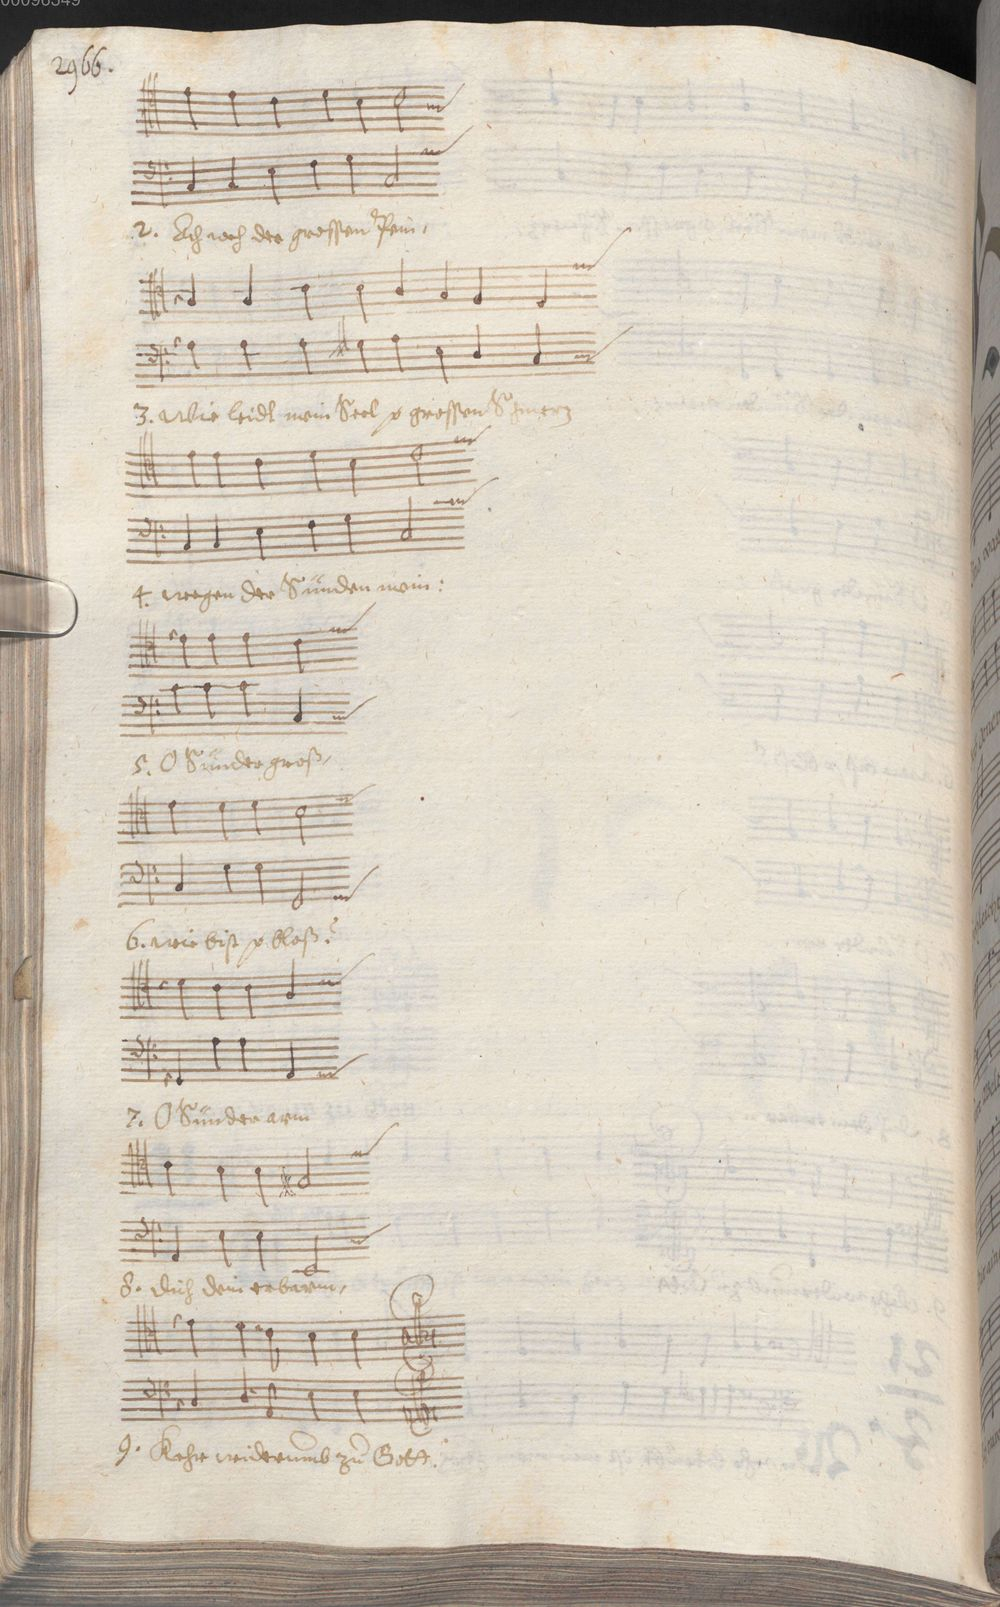 00098349
2966.
2. Ach wech der grossen Pein,
3. Wie leidt mein Seel so grossen Schmertz
4. wegen der Sünden mein:
5. O Sünder groß,
6. wie bist so bloß?
7. O Sünder arm
8. dich dein erbarm,
9. Kehr widerumb zu Gott.